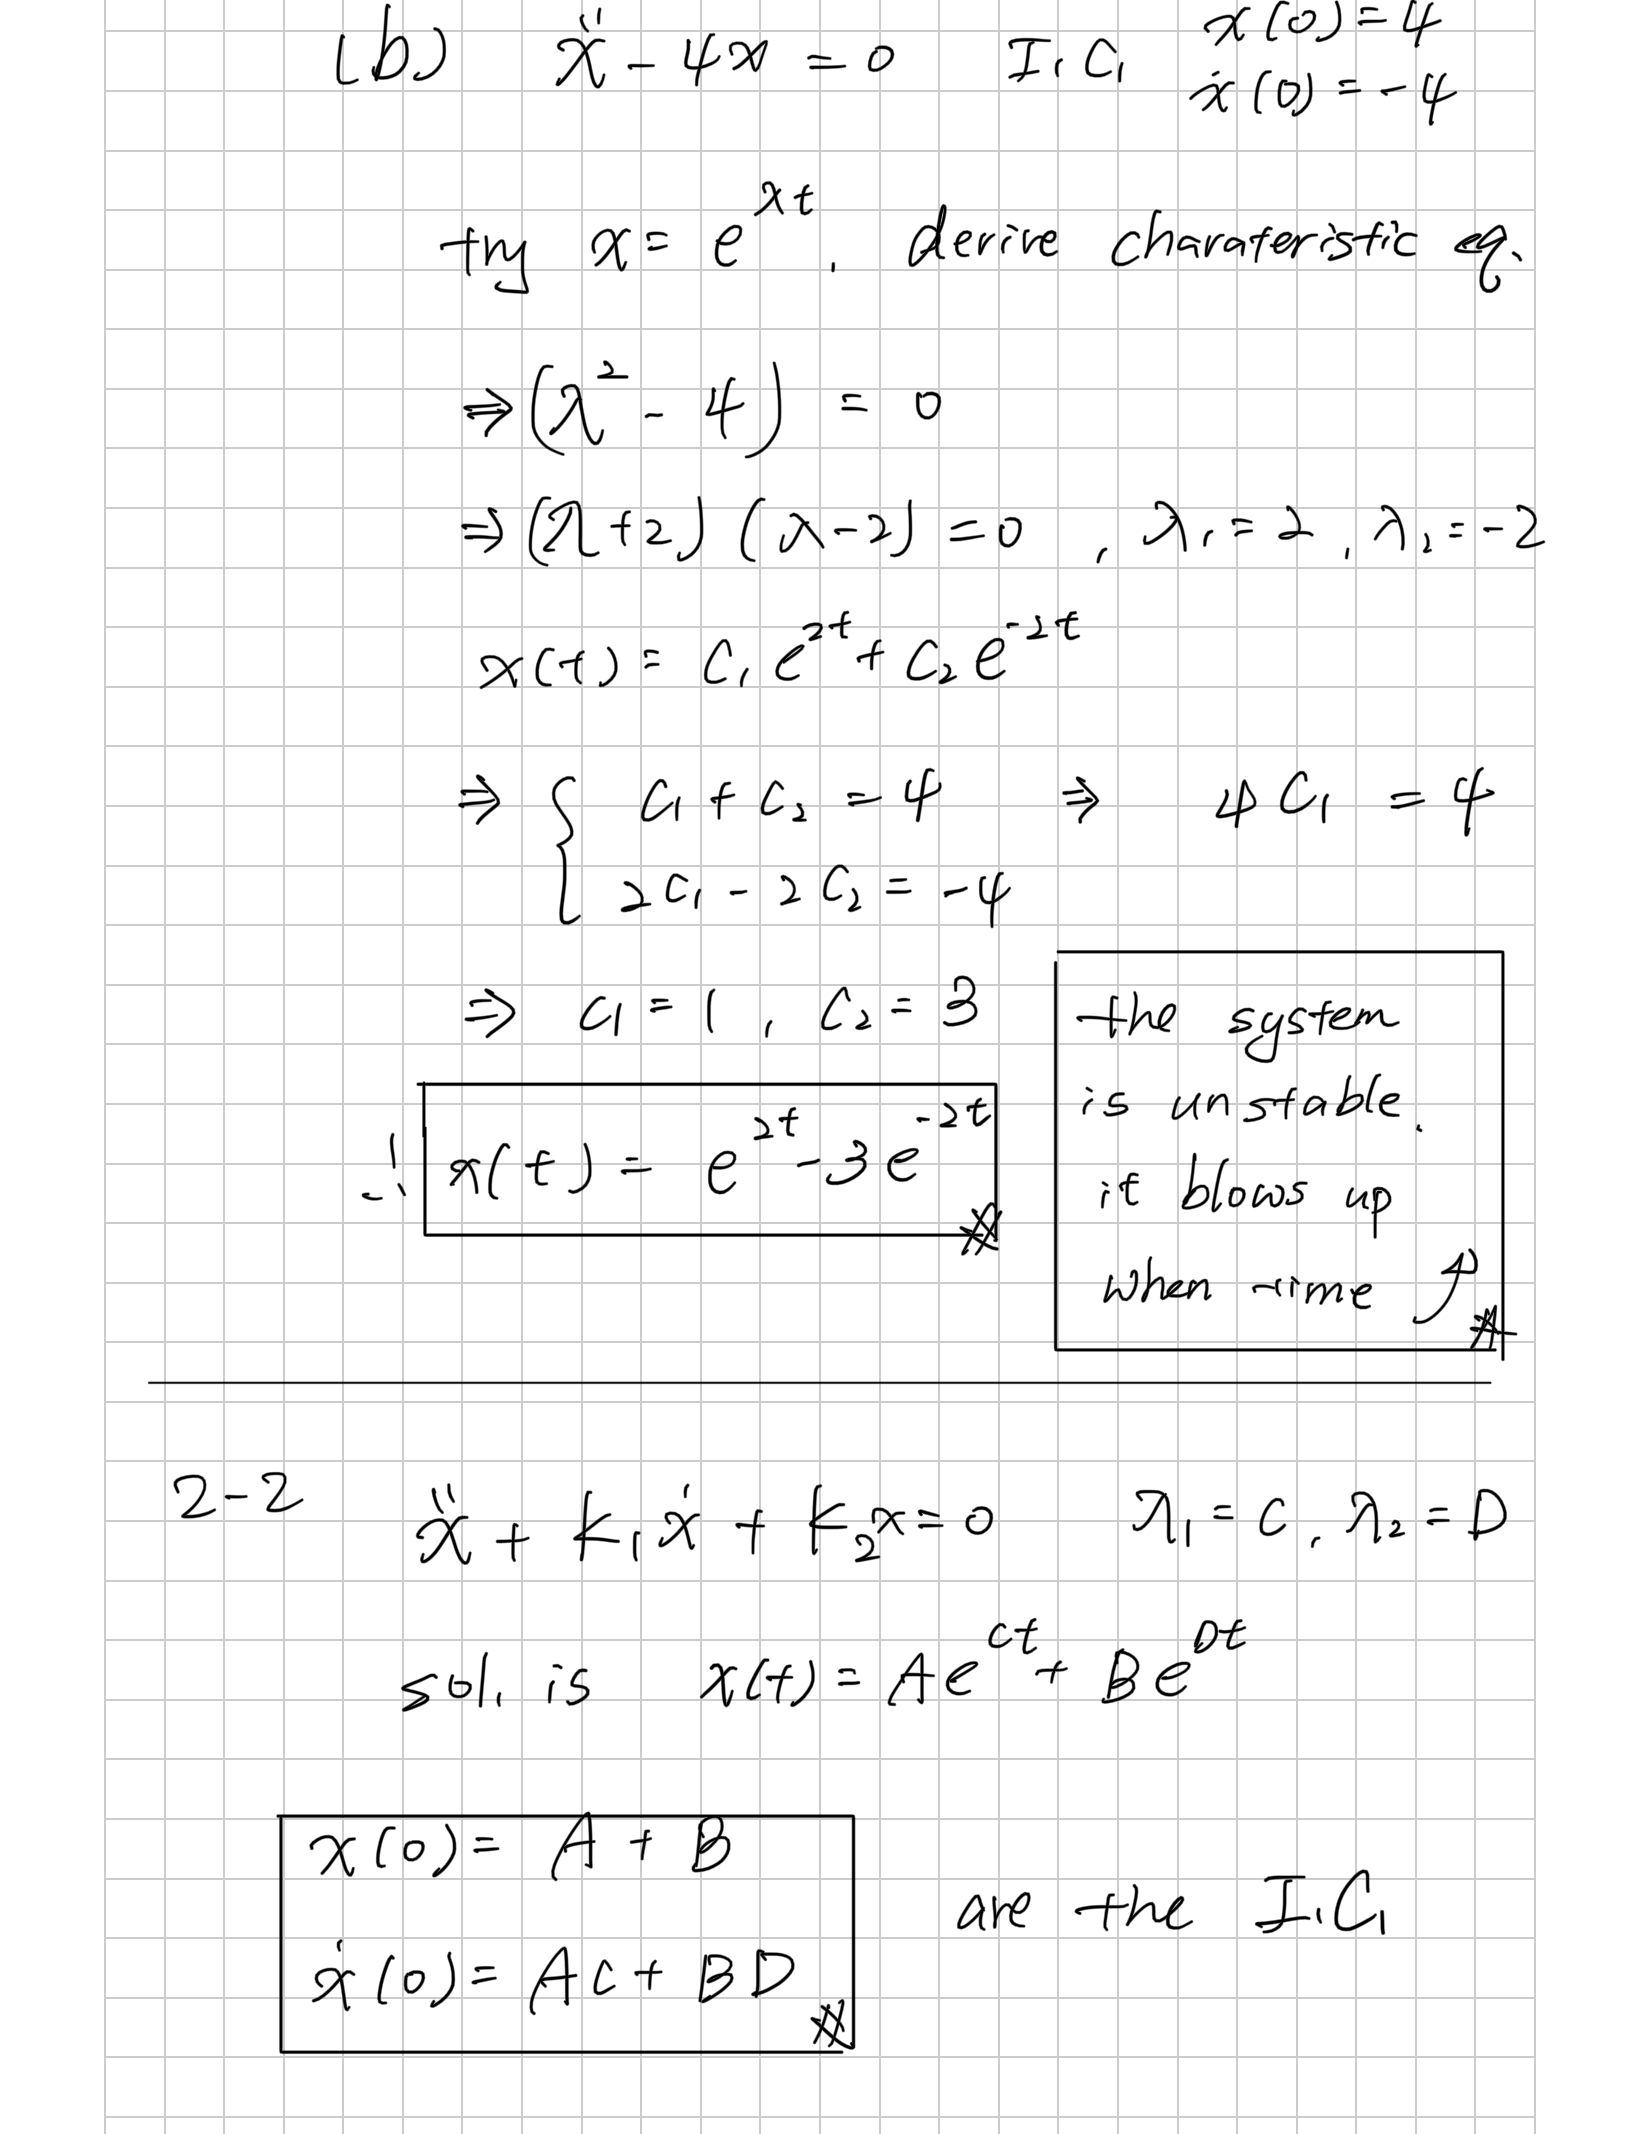 (b) ẍ - 4x = 0 I. C. x(0) = 4
ẋ(0) = -4
try x = e^{λt}, derive charateristic eq.
⇒ (λ² - 4) = 0
⇒ (λ+2) (λ-2) = 0 , λ₁ = 2 , λ₂ = -2
x(t) = C₁ e^{2t} + C₂ e^{-2t}
⇒ { C₁ + C₂ = 4 ⇒ 4 C₁ = 4
2C₁ - 2C₂ = -4
⇒ C₁ = 1 , C₂ = 3
∴ x(t) = e^{2t} - 3e^{-2t}
the system
is unstable.
it blows up
when time ↑
2-2 ẍ + k₁ẋ + k₂x = 0 λ₁ = C , λ₂ = D
sol. is x(t) = Ae^{Ct} + Be^{Dt}
x(0) = A + B
ẋ(0) = AC + BD
are the I.C.